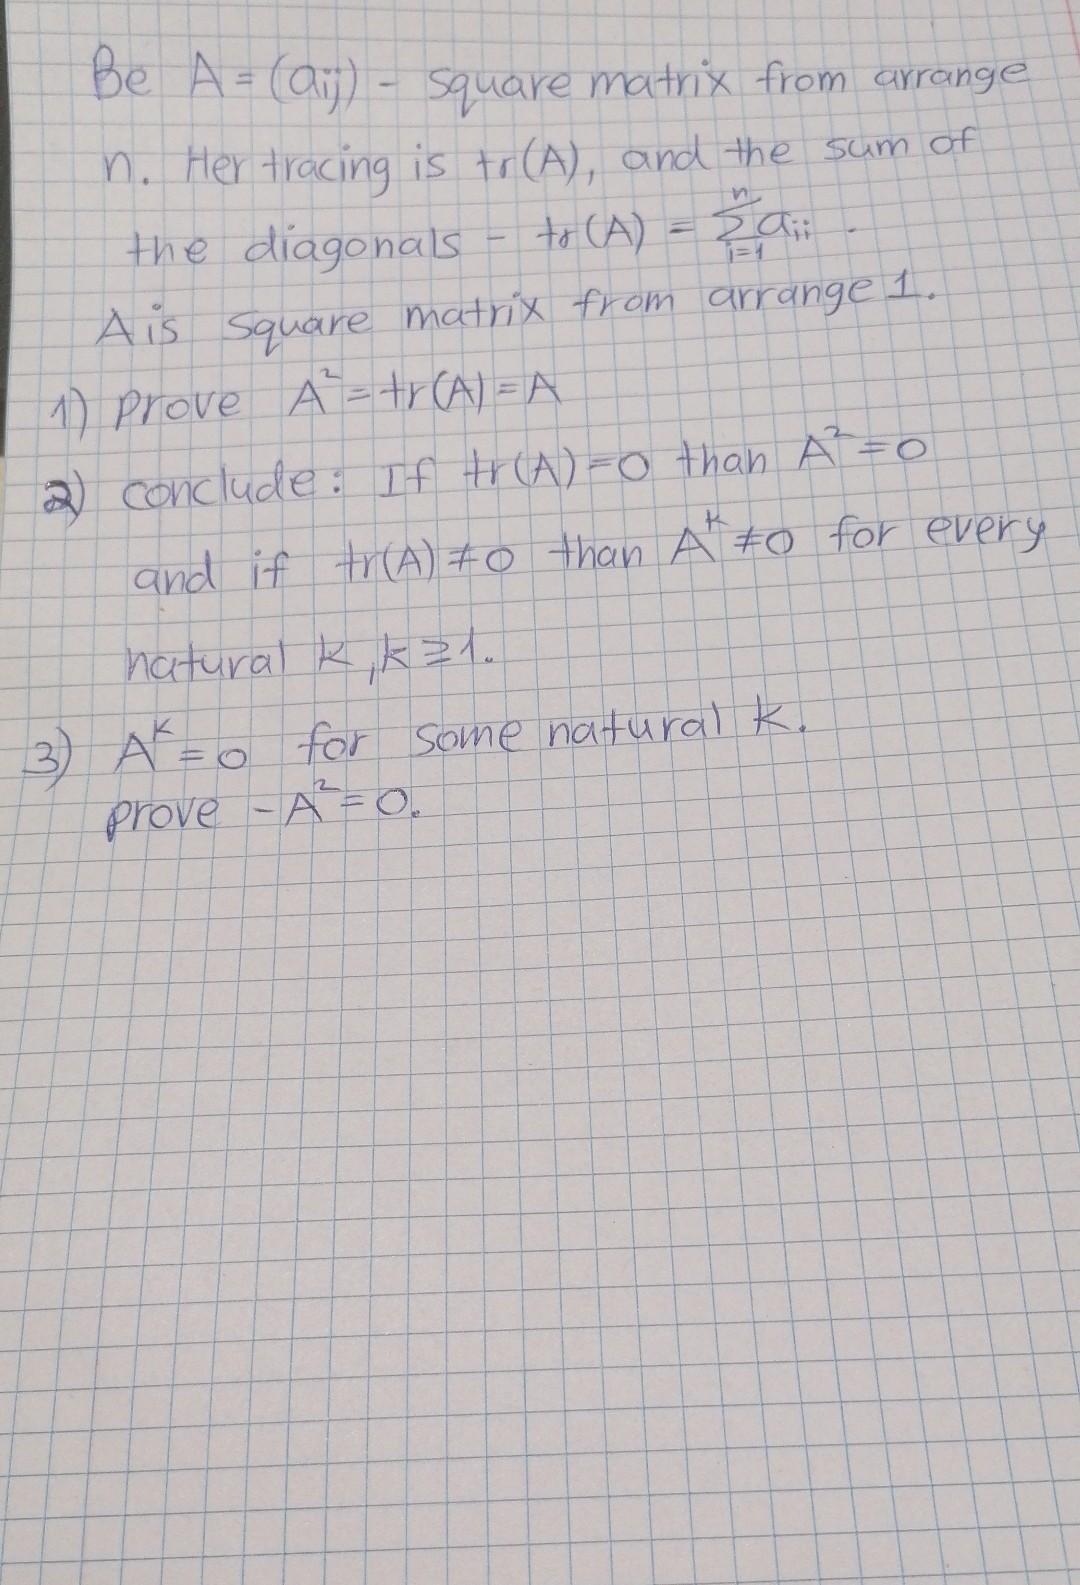 Be A = (aij) - square matrix from arrange
n. Her tracing is tr(A), and the sum of
the diagonals - tr(A) = \sum_{i=1}^{n} a_{ii} .
A is square matrix from arrange 1.
1) prove A² = tr(A) = A
2) conclude: If tr(A)=0 than A² = 0
and if tr(A) ≠ 0 than A^k ≠ 0 for every
natural k, k ≥ 1.
3) A^k = 0 for some natural k.
prove - A² = 0.